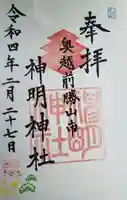 奉拝
奥越前勝山市
神明神社
令和四年二月二十七日